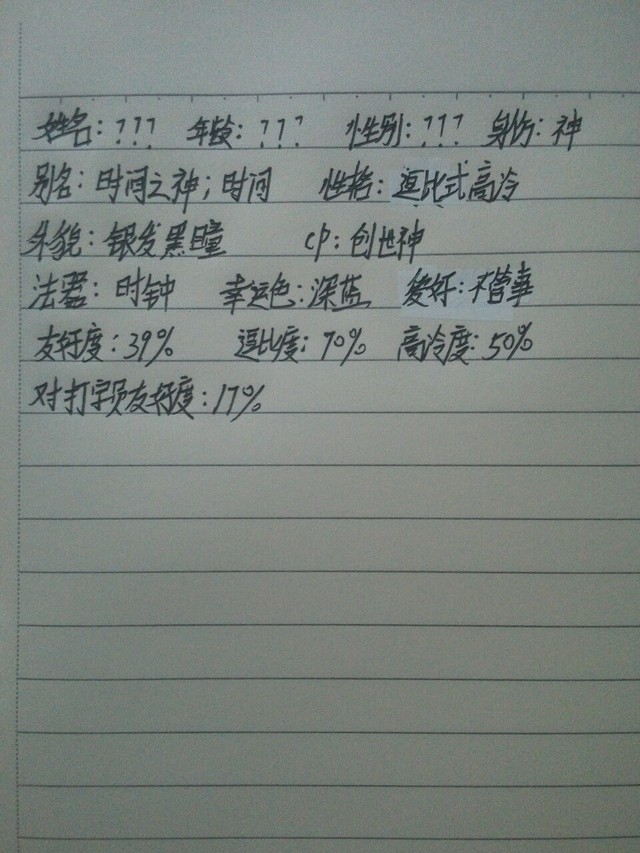 姓名：??? 年龄：??? 性别：??? 身份：神
别名：时间之神；时间 性格：逗比式高冷
外貌：银发黑瞳 cp：创世神
法器：时钟 幸运色：深蓝 爱好：不管事
友好度：39% 逗比度：70% 高冷度：50%
对打字员友好度：17%